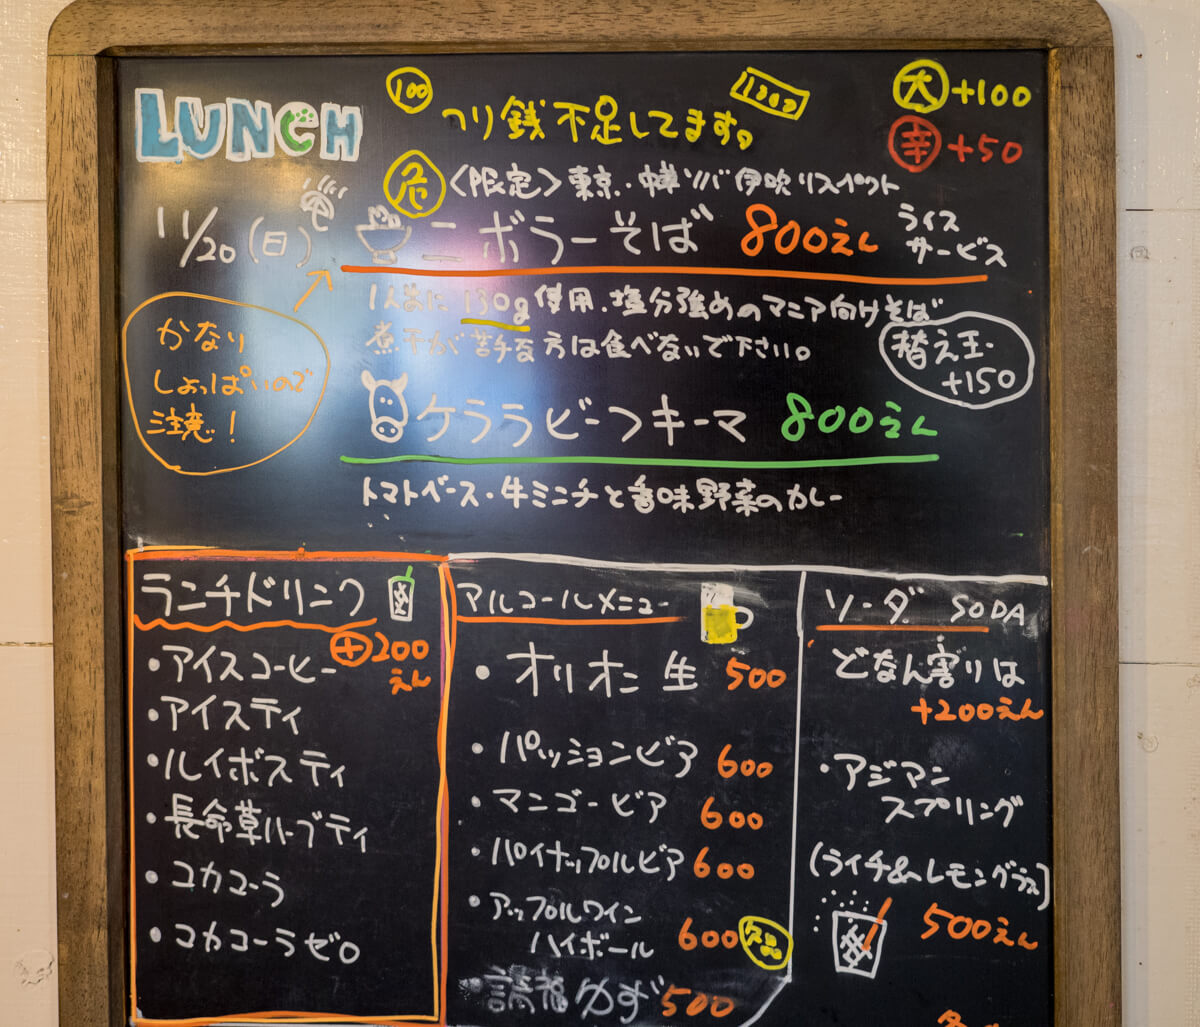 LUNCH
100
つり銭不足してます。
1000
大 +100
幸 +50
危 〈限定〉東京・中華ソバ伊吹リスペクト
11/20(日)
ニボラーそば 800えん
ライス
サービス
1人前に130g使用、塩分強めのマニア向けそば
煮干が苦手な方は食べないで下さい。
替え玉
+150
かなり
しょっぱいので
注意!
ケララビーフキーマ 800えん
トマトベース・牛ミニチと香味野菜のカレー
ランチドリンク
+200
えん
・アイスコーヒー
・アイスティ
・ルイボスティ
・長命草ハーブティ
・コカコーラ
・コカコーラゼロ
アルコールメニュー
・オリオン 生 500
・パッションビア 600
・マンゴービア 600
・パイナップルビア 600
・アップルワイン
ハイボール 600 欠品
ゆず 500
ソーダ SODA
どなん割りは
+200えん
・アジアン
スプリング
(ライチ&レモングラス)
500えん